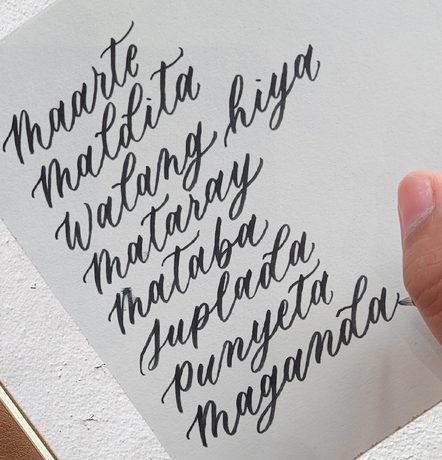 maarte
maldita
walang hiya
mataray
mataba
suplada
punyeta
maganda